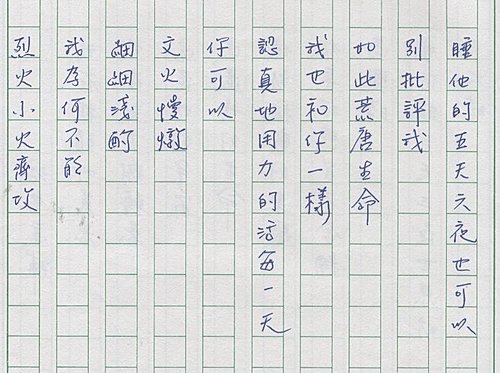 睡他的五天六夜也可以
別批評我
如此荒唐生命
我也和仔一樣
認真地用力的活每一天
仔可以
文火慢燉
細細淺酌
我為何不能
烈火小火齊攻